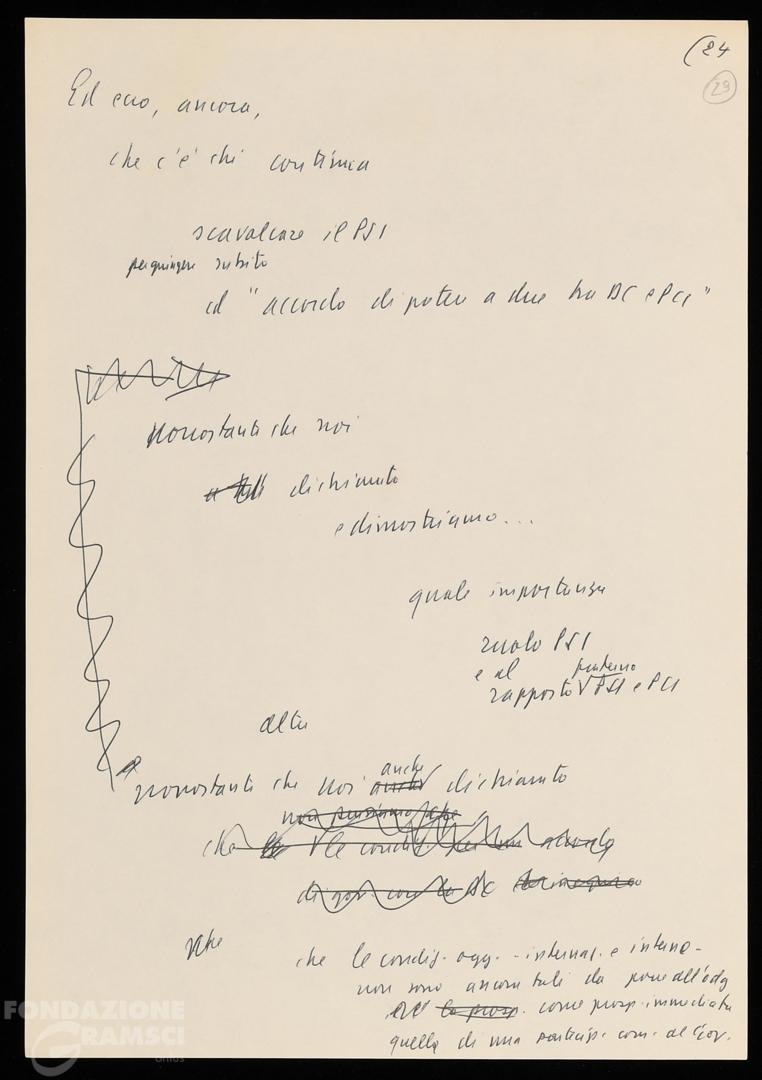 (24
23
Ed ecco, ancora,
che c'è chi continua
scavalcare il PSI
per giungere subito
ad "accordo di potere a due tra DC e PCI"
nonostante che noi
dichiariamo
e dimostriamo...
quale importanza
ruolo PSI
e al
fraterno
rapporto √ PSI e PCI
altri
nonostante che noi anche dichiariamo
non pensiamo che
che le condiz. per un accordo
di gov. con la DC
che le condiz. ogg. - internaz. e interne -
non sono ancora tali da porre all'odg
la prosp. come prosp. immediata
quella di una partecip. com. al Gov.
FONDAZIONE
GRAMSCI
onlus